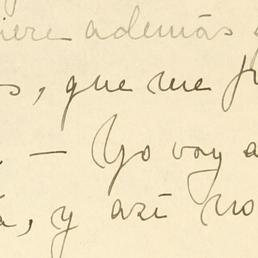 iere además
s, que me
— Yo voy a
a, y así no